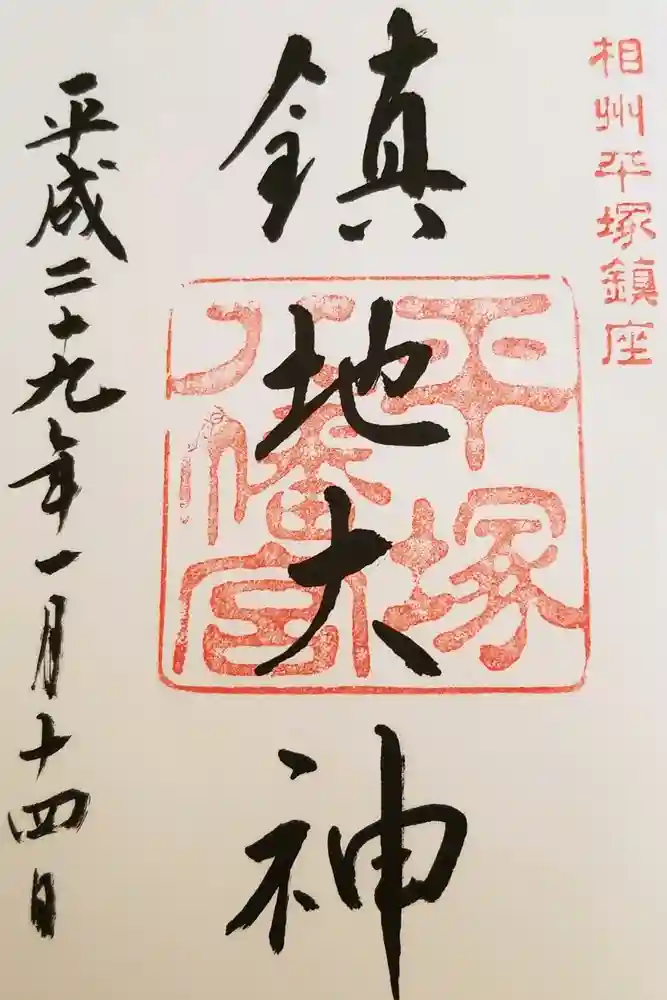 相州平塚鎮座
鎮地大神
平塚
八幡宮
平成二十九年一月十四日